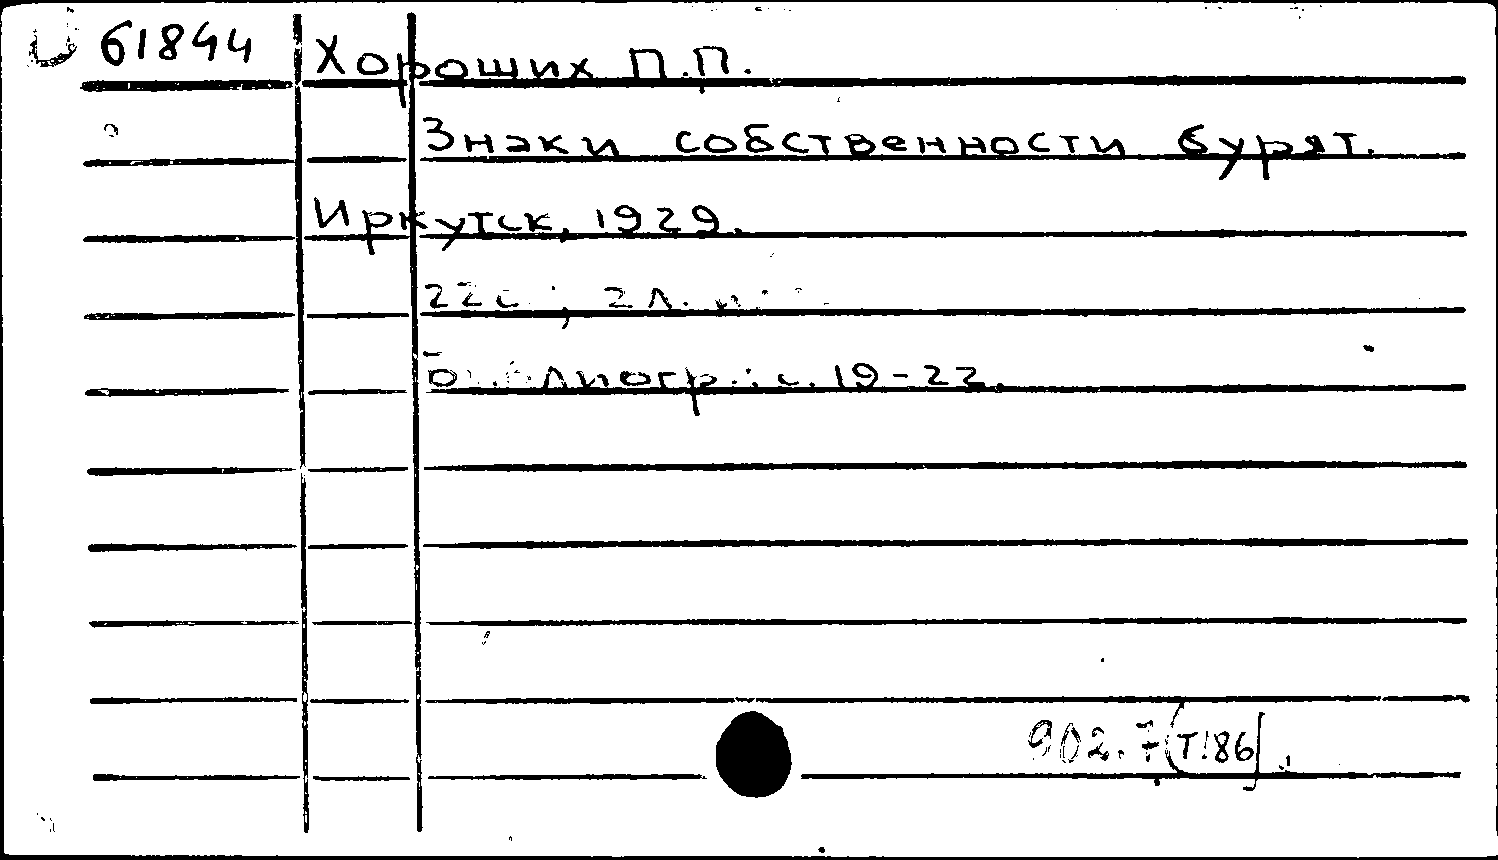 61844
Хороших П.П.
Знаки собственности бурят.
Иркутск, 1929.
22с.; 2 л.
Библиогр.: с. 19-22.
902.7(Т!86)